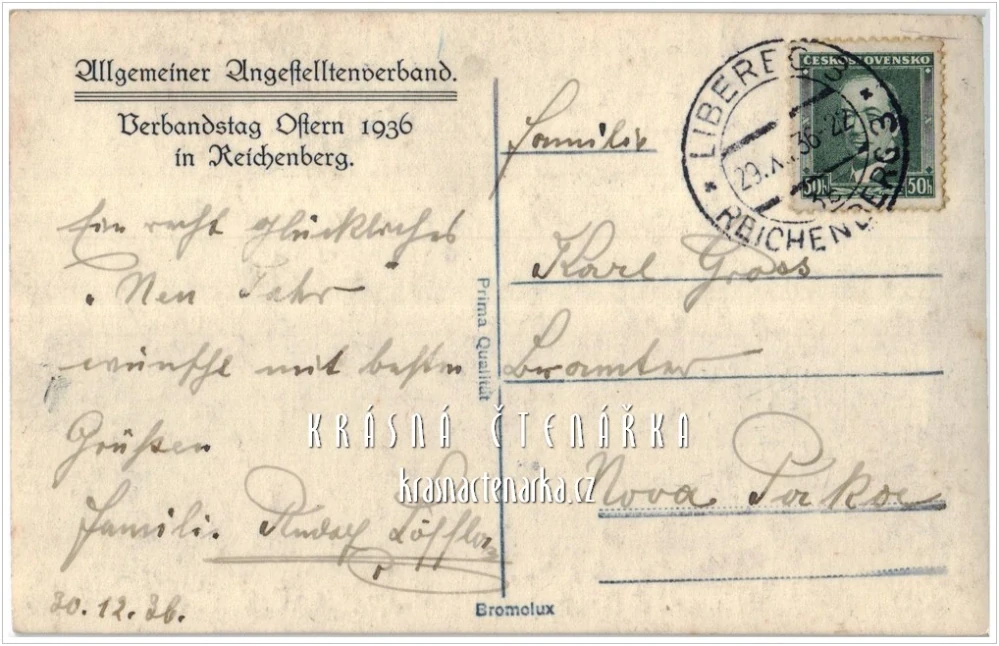 Allgemeiner Angestelltenverband.
Verbandstag Ostern 1936
in Reichenberg.
Ein recht glückliches
Neu Jahr
wünscht mit besten
Grüßen
Famili. Rudolf Löffler
30.12.36.
Prima Qualität
Bromolux
LIBEREC 3
29.X 36-22
REICHENBERG 3
ČESKOSLOVENSKO
50h 50h
Familie
Karl Gross
Beamter
Nova Paka
KRÁSNÁ ČTENÁŘKA
krasnactenarka.cz